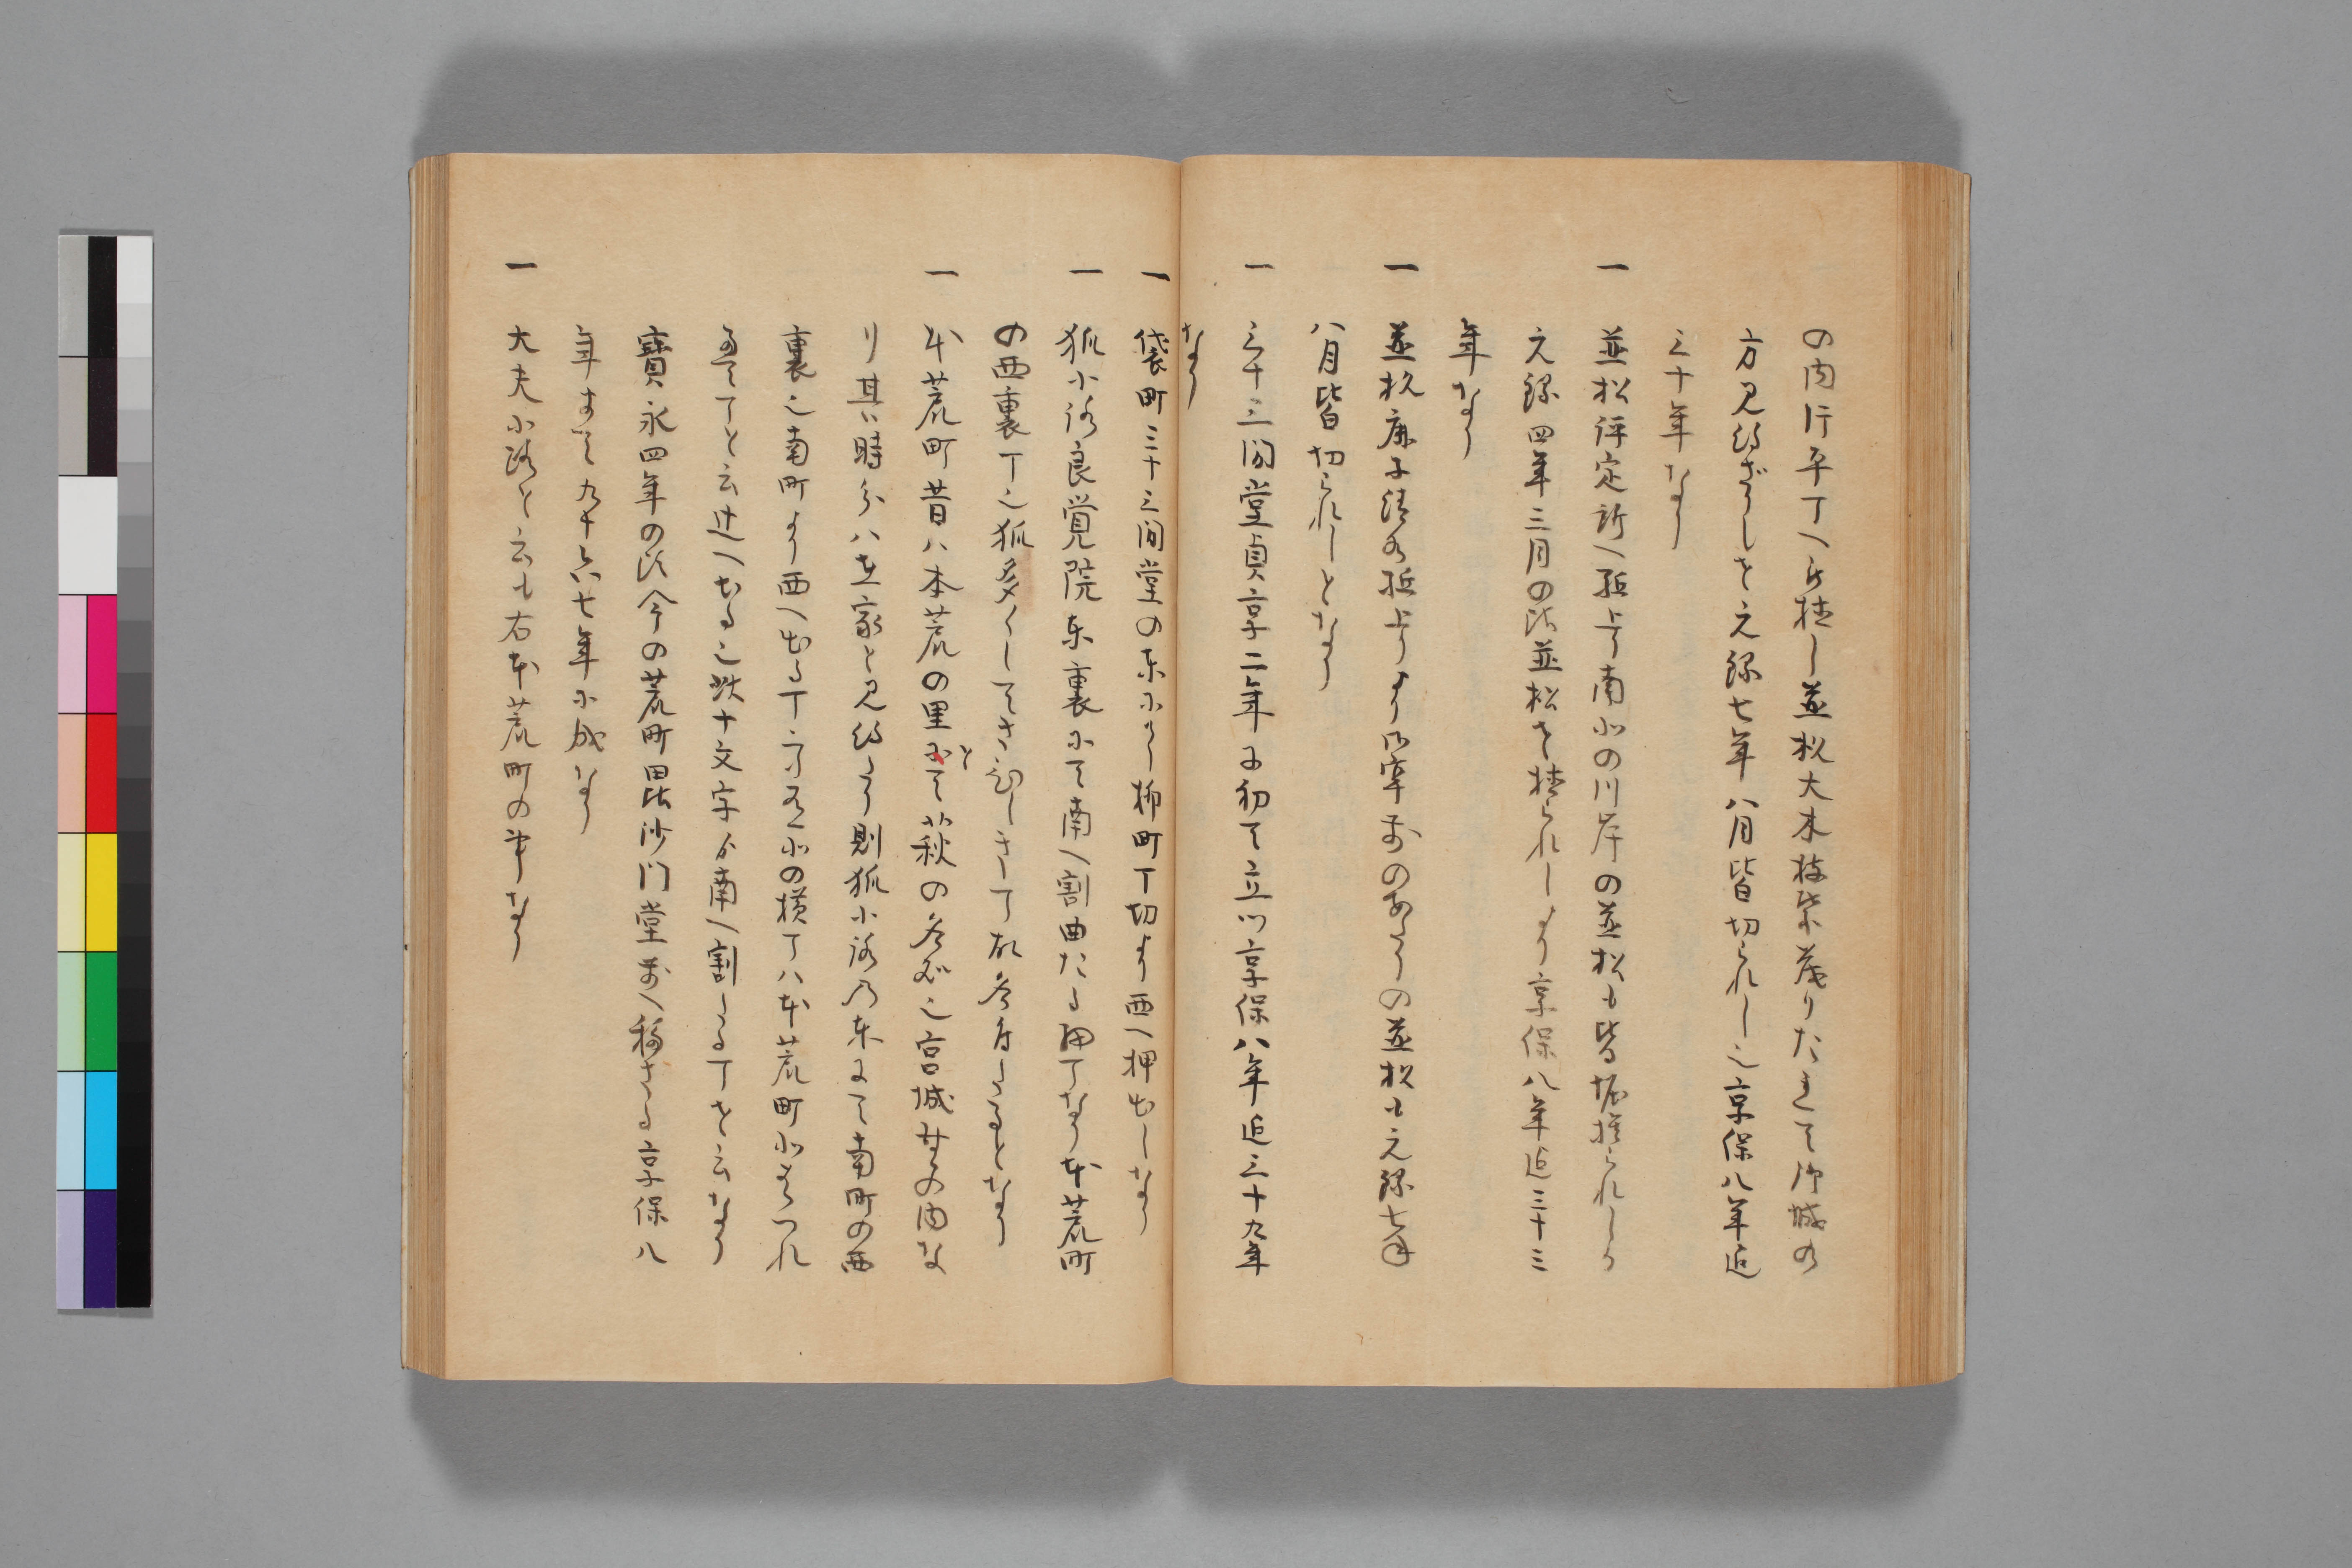 の内片平丁へ被植し並杉大木枝葉茂りたまて御城の
方見得ざりしを元録七年八月皆切られし也享保八年迄
三十年なり
一 並松評定所へ上り南北の川岸の並松も皆堀捨られしハ
元録四年三月の比並松を植られしより享保八年迄三十三
年なり
一 並杦上りより御宰前のあたりの並杦も元録七年
八月皆切られしとなり
一 三十三間堂貞享二年に初て立つ享保八年迄三十九年
なり
一 袋町三十三間堂の東にあり柳町丁切より西へ押出しなり
一 狐小路良覚院東裏にて南へ割曲たる細丁なり本荒町
の西裏丁也狐多くしてさひしき丁故名付しとなり
一 本荒町昔ハ本荒の里にてと萩の名所也宮城野の内な
り其比時分ハ在家と見得たり則狐小路乃東にて南町の西
裏也南町より西へ出る丁二つ有北の横丁ハ本荒町北はつれ
とて丁と云辻へ出る也此十文字から南へ割たる丁を云なり
寶永四年の比今の荒町毘沙門堂前へ移さる享保八
年まて九十六七年に成なり
一 大夫小路と云も右本荒町の事なり